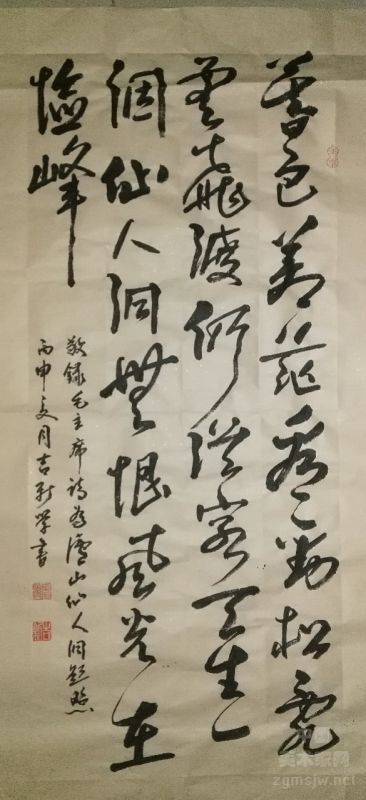 暮色蒼茫看勁松亂
雲飛渡仍從容天生一
個仙人洞無限風光在
險峰
敬錄毛主席詩為廬山仙人洞題照
丙申夏月吉新學書
美术家网
zgmsjw.net